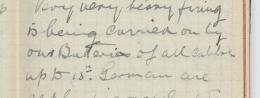 Very very heavy firing
is being carried on by
our Batteries of all calibre
up to 15". German are